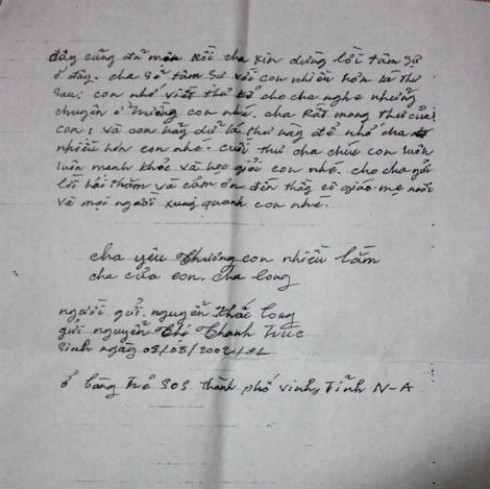 đây cũng đã muộn rồi cha xin dừng lời tâm sự
ở đây. cha sẽ tâm sự với con nhiều hơn lá thư
sau; con nhớ viết thư kể cho cha nghe những
chuyện ở miềng con nhé. cha rất mong thư của
con; và con hãy dữ lá thư này để nhớ cha
nhiều hơn con nhé. cuối thư cha chúc con luôn
luôn mạnh khỏe và học giỏi con nhé. cho cha gửi
lời hỏi thăm và cảm ơn đến thầy cô giáo. mẹ nuôi
và mọi người xung quanh con nhé.
cha yêu thương con nhiều lắm
cha của con. cha long
người gửi. nguyễn khắc long
gửi nguyễn thị thanh trúc
sinh ngày
ở làng trẻ SOS thành phố vinh, Tỉnh N-A